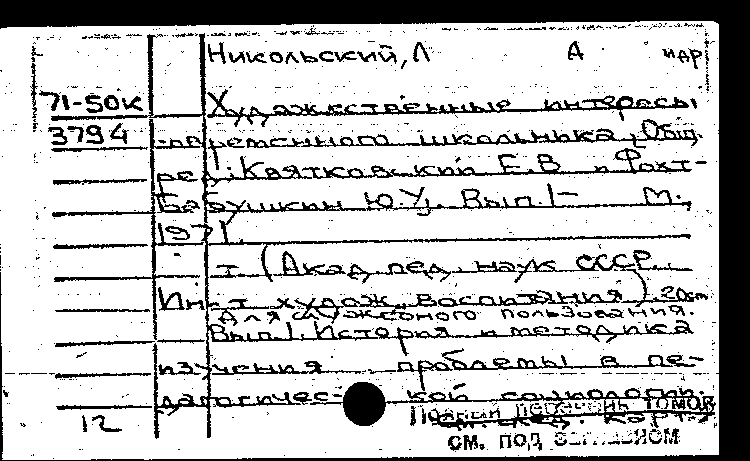 Никольский, Л А и др
71-50к Художественные интересы
3794 современного школьника. [Общ.
ред.: Квятковский Е.В. и Фохт-
Бабушкин Ю.У]. Вып. 1- М.,
1971.
т (Акад. пед. наук СССР.
Ин-т худож. воспитания). 20см
Для служебного пользования.
Вып. 1. История и методика
изучения проблемы в пе-
дагогической социологии.
12 Полный перечень томов
см. след. карт.
см. под заглавием